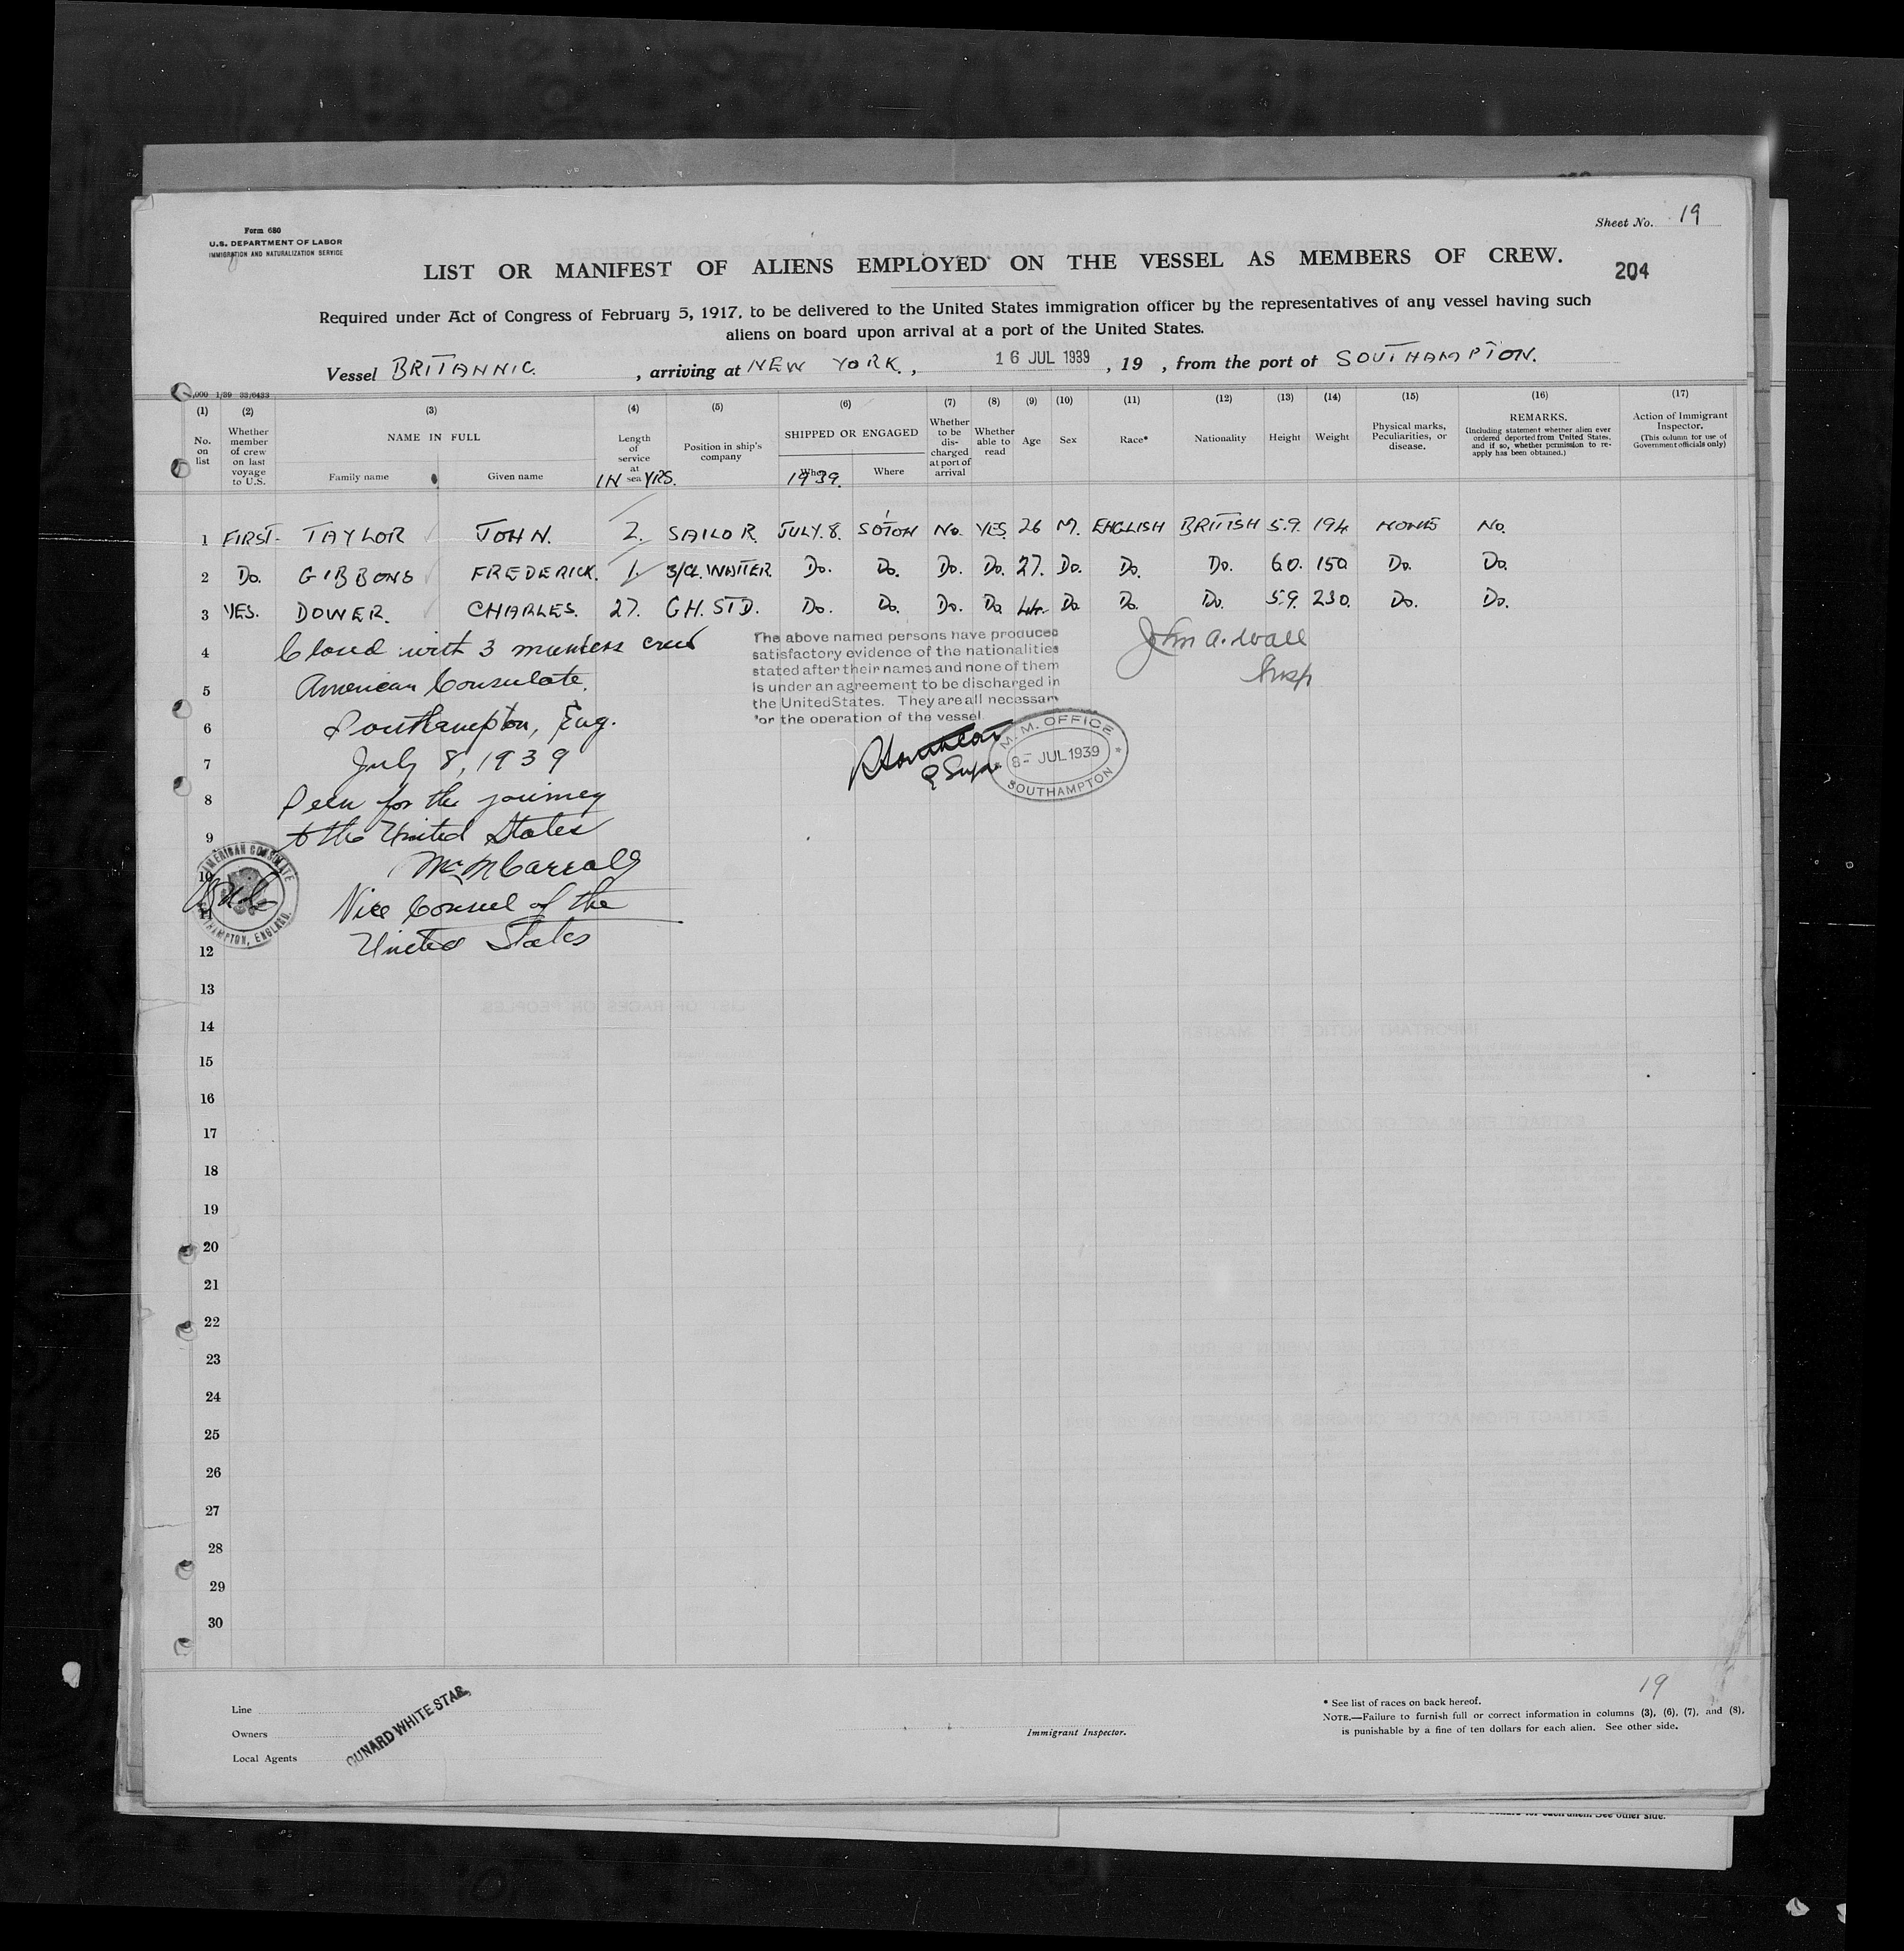 Form 680
U.S. DEPARTMENT OF LABOR
IMMIGRATION AND NATURALIZATION SERVICE
Sheet No. 19
LIST OR MANIFEST OF ALIENS EMPLOYED ON THE VESSEL AS MEMBERS OF CREW.
204
Required under Act of Congress of February 5, 1917, to be delivered to the United States immigration officer by the representatives of any vessel having such
aliens on board upon arrival at a port of the United States.
Vessel BRITANNIC. , arriving at NEW YORK. , 16 JUL 1939 , 19 , from the port of SOUTHAMPTON.
,000 1/39 33/6433
(1) (2) (3) (4) (5) (6) (7) (8) (9) (10) (11) (12) (13) (14) (15) (16) (17)
No. on list
Whether member of crew on last voyage to U.S.
NAME IN FULL
Family name Given name
Length of service at sea
IN YRS.
Position in ship's company
SHIPPED OR ENGAGED
When Where
1939.
Whether to be discharged at port of arrival
Whether able to read
Age Sex Race* Nationality Height Weight
Physical marks, Peculiarities, or disease.
REMARKS.
(Including statement whether alien ever ordered deported from United States, and if so, whether permission to reapply has been obtained.)
Action of Immigrant Inspector.
(This column for use of Government officials only)
1 FIRST- TAYLOR JOHN. 2. SAILOR. JULY.8. SO'TON No. YES 26 M. ENGLISH BRITISH 5.9. 194 NONE No.
2 Do. GIBBONS FREDERICK. 1. 3/CL.WAITER. Do. Do. Do. Do. 27. Do. Do. Do. 6.0. 150 Do. Do.
3 YES. DOWER. CHARLES. 27. G.H. STD. Do. Do. Do. Do 44. Do Do. Do. 5.9. 230. Do. Do.
4 Closed with 3 members crew
5 American Consulate.
6 Southampton, Eng.
7 July 8, 1939
8 Seen for the journey
9 to the United States
10
11 Vice Consul of the
12 United States
The above named persons have produced
satisfactory evidence of the nationalities
stated after their names and none of them
is under an agreement to be discharged in
the United States. They are all necessary
for the operation of the vessel.
John A. Wall
Insp
M. M. OFFICE
8- JUL 1939
SOUTHAMPTON
AMERICAN CONSULATE
SOUTHAMPTON, ENGLAND.
13
14
15
16
17
18
19
20
21
22
23
24
25
26
27
28
29
30
Line
Owners
Local Agents
CUNARD WHITE STAR,
Immigrant Inspector.
19
* See list of races on back hereof.
NOTE.—Failure to furnish full or correct information in columns (3), (6), (7), and (8),
is punishable by a fine of ten dollars for each alien. See other side.